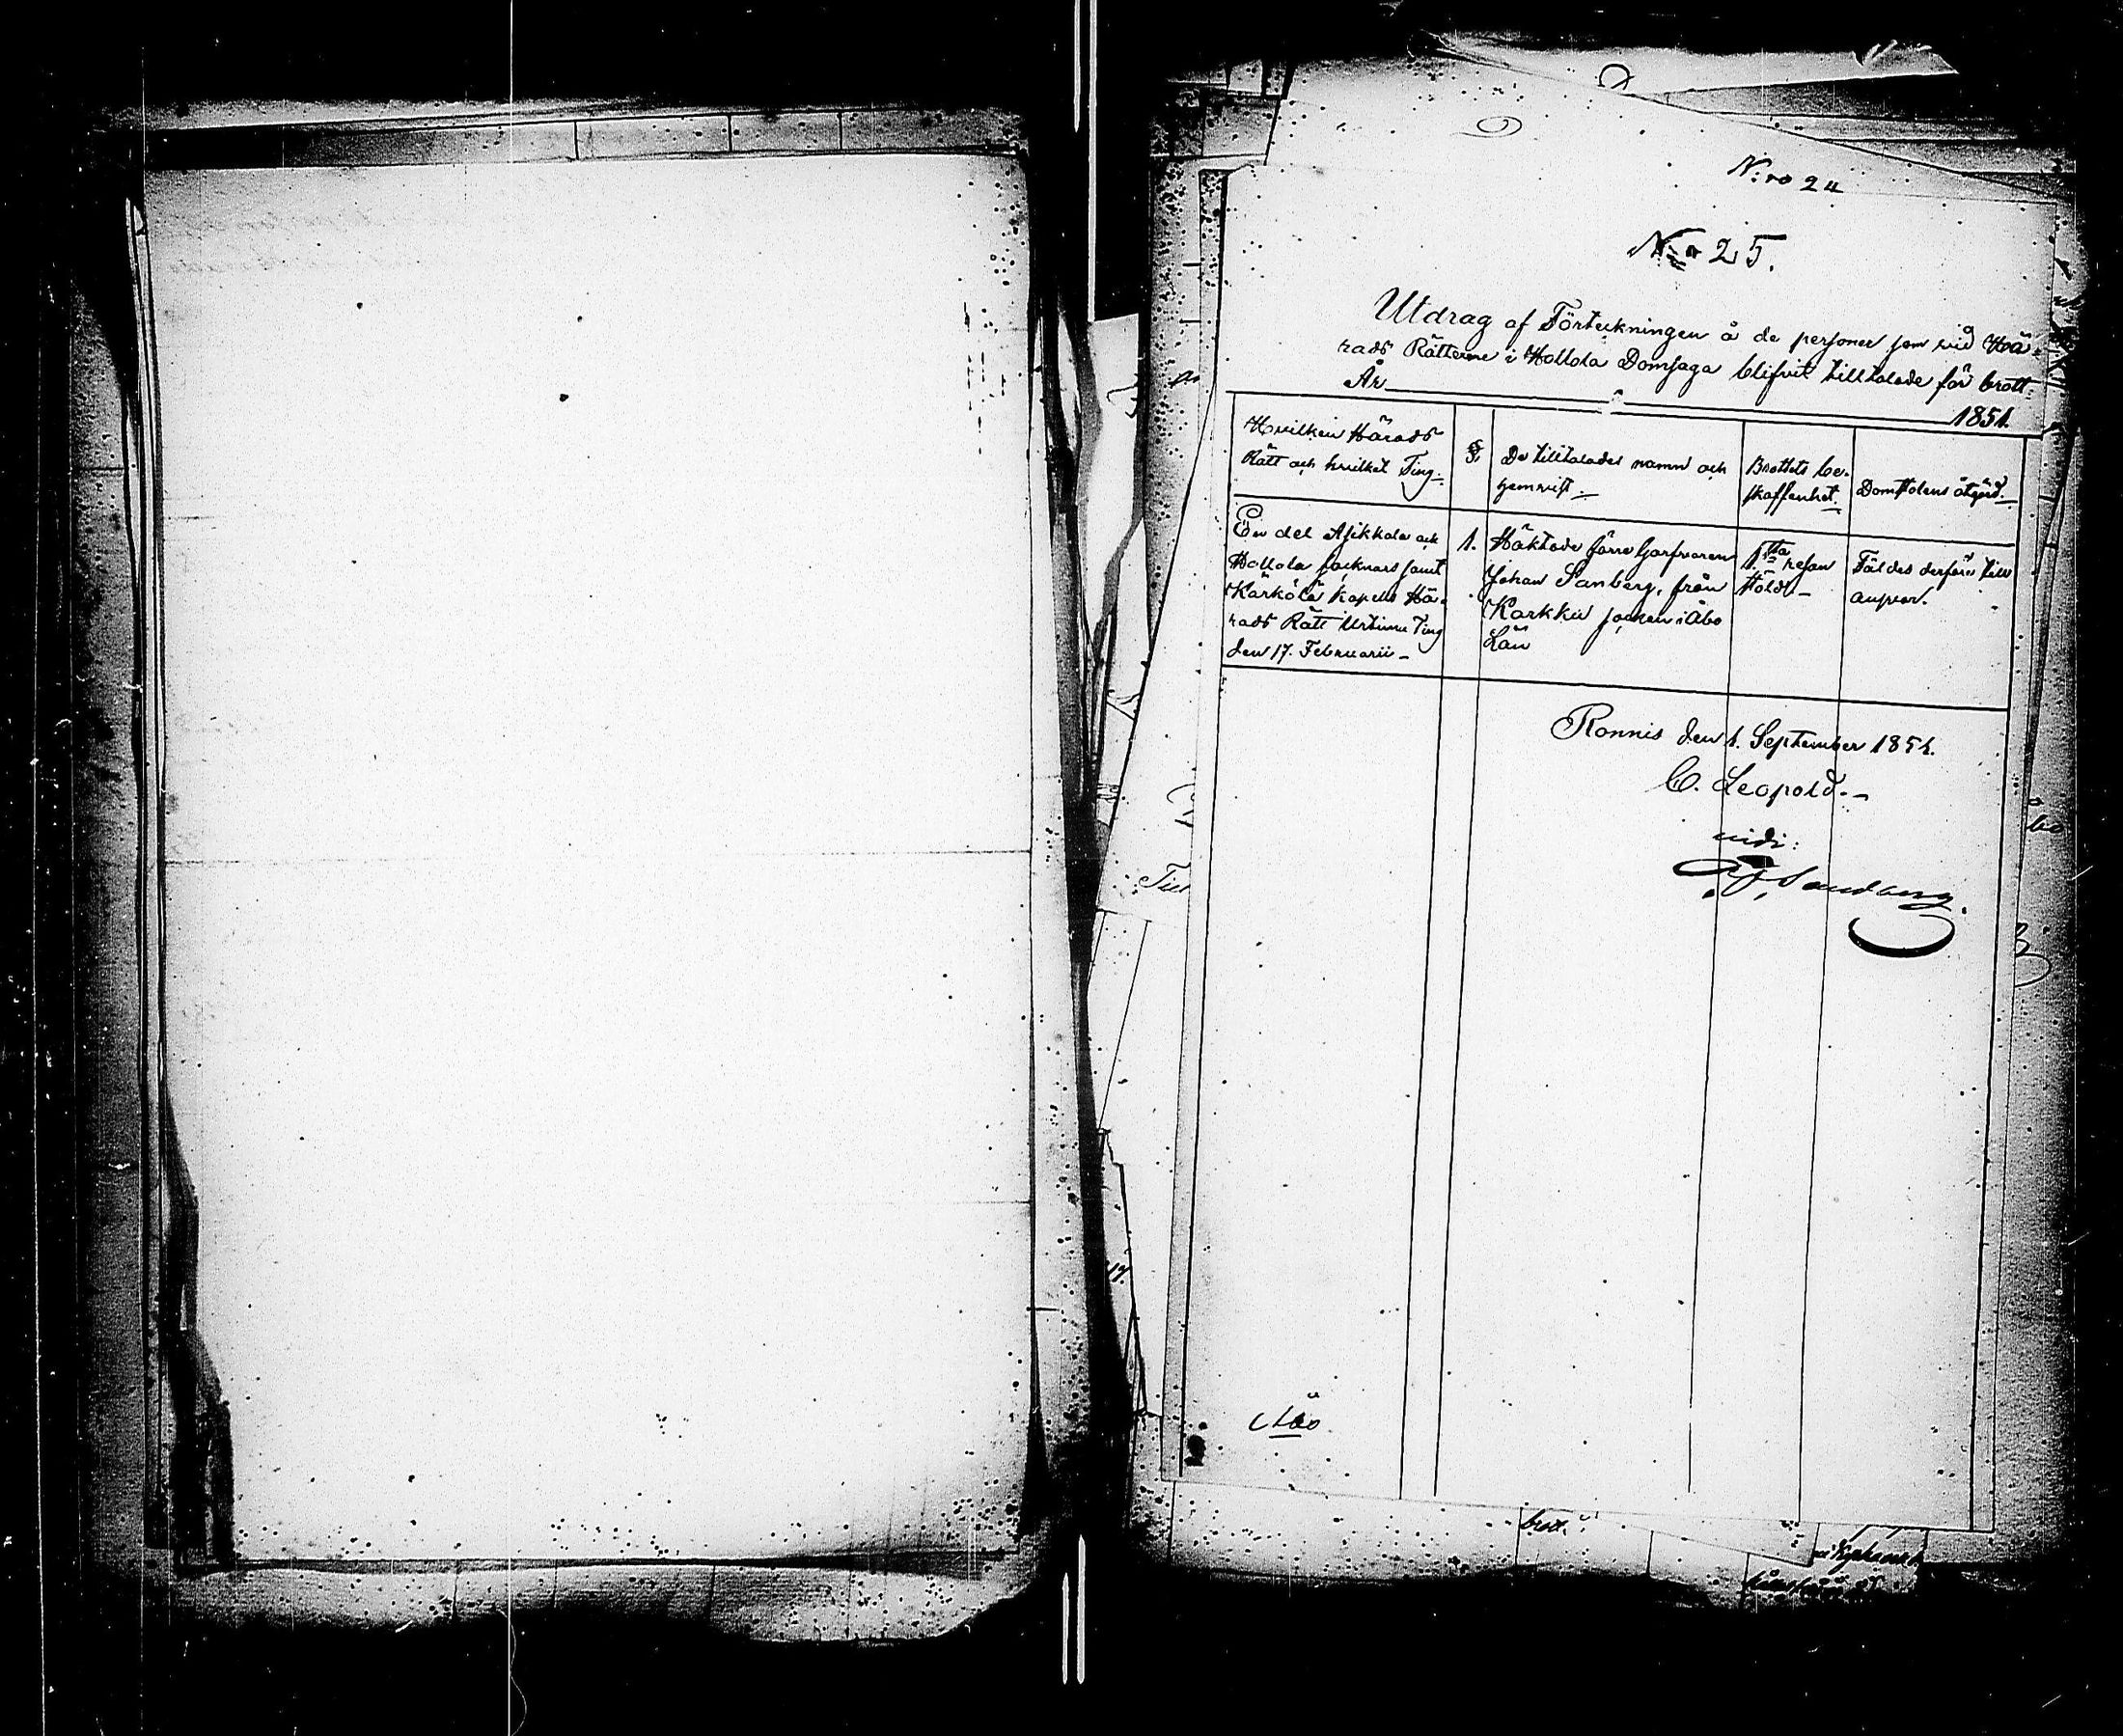 N:ro 24
N:o 25.
Utdrag af Förteckningen å de personer som vid Hä-
rads Rätterne i Hollola Domsaga blifvit tilltalade för brott
År 1851.
Hvilken Härads
Rätt och hvilket Ting.
§.
De tilltalades namn och
hemvist
Brottets be-
skaffenhet
Domstolens åtgärd.
En del Asikkala och
Hollola socknars samt
Kärkölä kapells Hä-
rads Rätt Urtima Ting
den 17. Februarii
1.
Häktade förre Garfvaren
Johan Sanberg, från
Karkku socken i Åbo
Län
1:sta resan
stöld
Fäldes derföre till
ansvar.
Ronnis den 1. September 1851.
C. Leopold.
vidi:
Sandberg.
Åbo
Till
17.